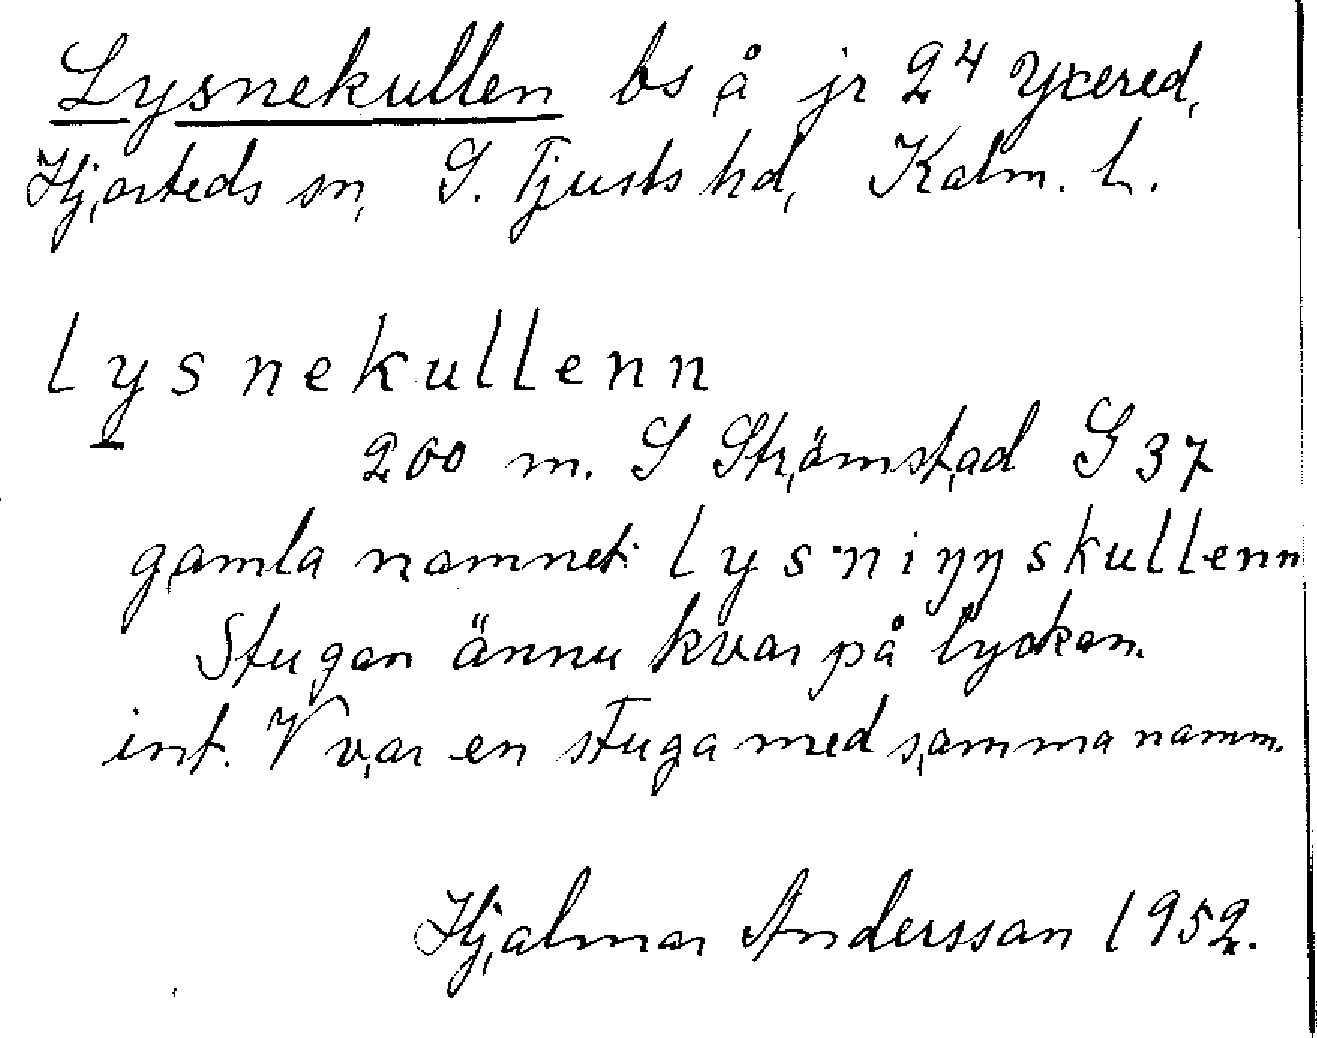 Lysnekullen bs å jr 2⁴ Yxered,
Hjorteds sn, S. Tjusts hd, Kalm. l.
lysnekullenn
200 m. S Strömstad G 37
gamla namnet: lysniŋŋskullenn
Stugan ännu kvar på lyckan.
inf. V var en stuga med samma namn.
Hjalmar Andersson 1952.